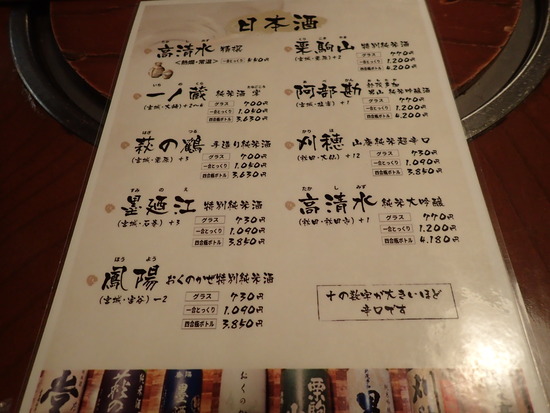 日本酒
高清水 精撰
<熱燗・常温> 一合とっくり 550円
一ノ蔵 純米酒
(宮城・大崎)
グラス 700円
一合とっくり 1,050円
四合瓶ボトル 3,630円
はぎ つる
萩の鶴 手造り純米酒
(宮城・栗原) +3
グラス 700円
一合とっくり 1,050円
四合瓶ボトル 3,630円
すみ の え
墨廼江 特別純米酒
(宮城・石巻) +3
グラス 730円
一合とっくり 1,090円
四合瓶ボトル 3,850円
ほう よう
鳳陽 おくのかぜ特別純米酒
(宮城・富谷) −2
グラス 730円
一合とっくり 1,090円
四合瓶ボトル 3,850円
栗駒山 特別純米酒
(宮城・栗原) +2
グラス 770円
一合とっくり 1,200円
四合瓶ボトル 4,200円
阿部勘 純米吟醸酒
(宮城・塩釜) +1
グラス 770円
一合とっくり 1,200円
四合瓶ボトル 4,200円
かり ほ
刈穂 山廃純米超辛口
(秋田・大仙) +12
グラス 730円
一合とっくり 1,090円
四合瓶ボトル 3,850円
たか し みず
高清水 純米大吟醸
(秋田・秋田市) +1
グラス 770円
一合とっくり 1,200円
四合瓶ボトル 4,180円
+の数字が大きいほど
辛口です